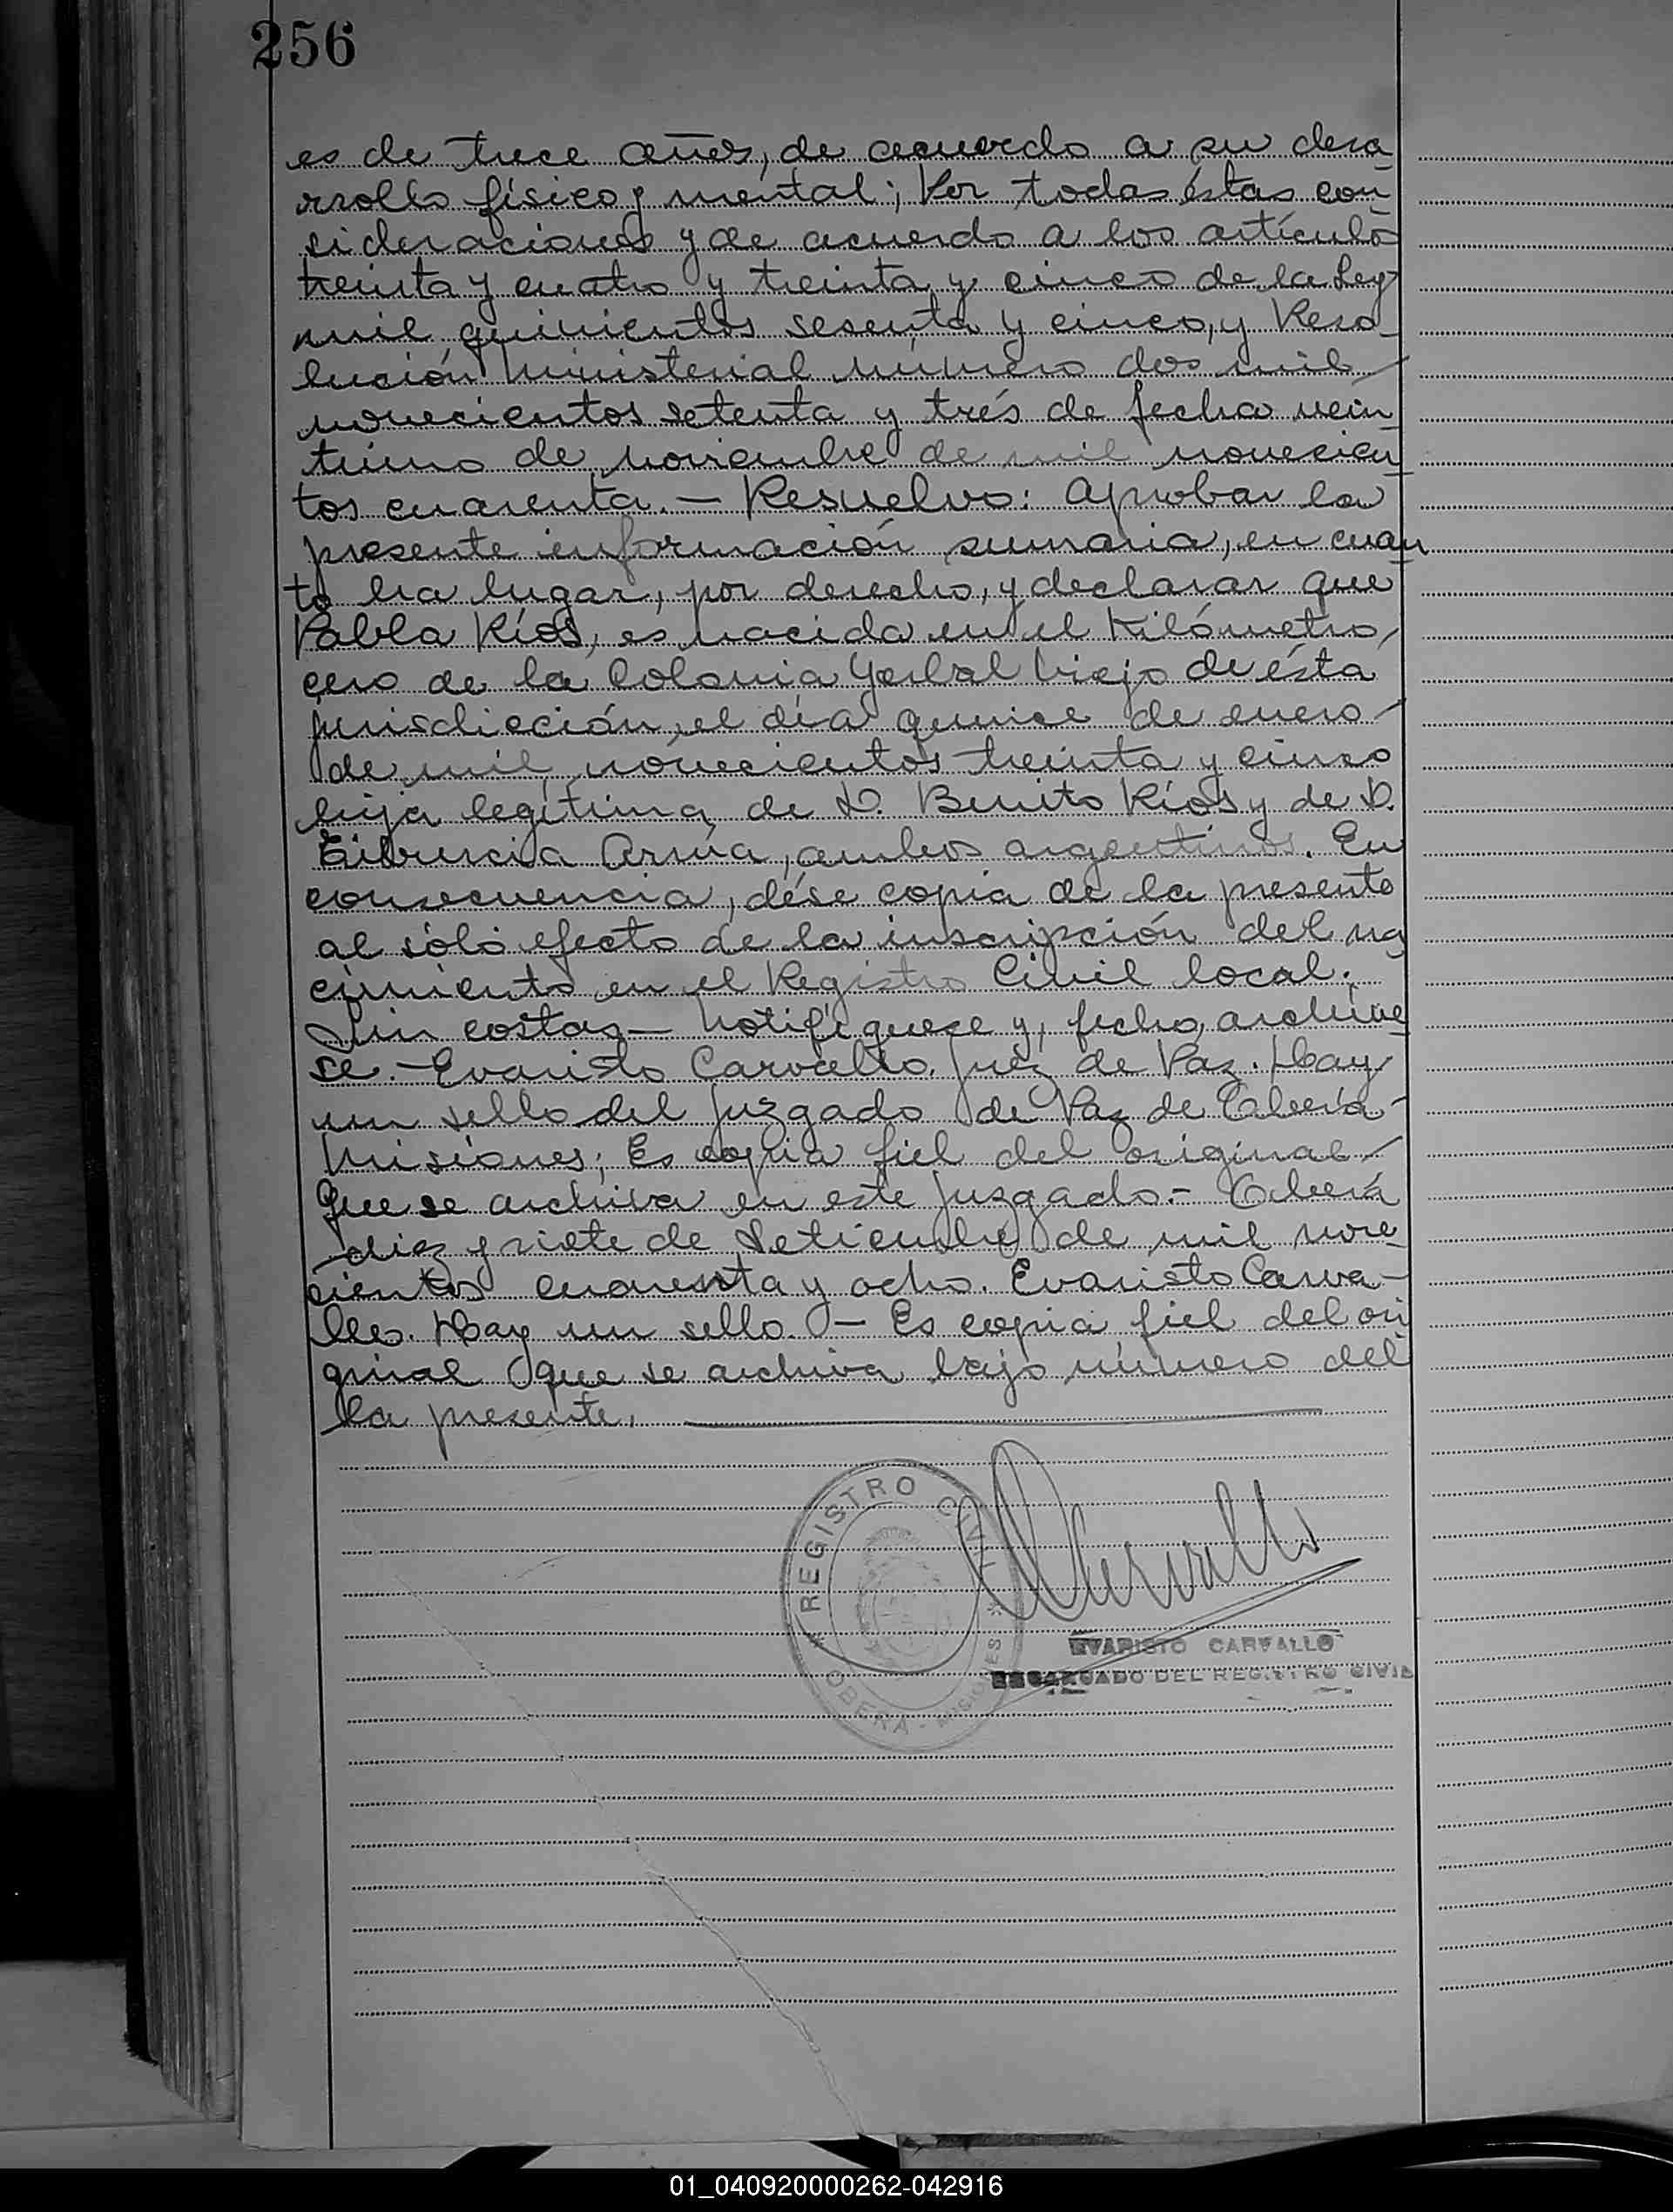 256
es de trece años, de acuerdo a su desa
rrollo físico y mental; Por todas éstas con
sideraciones y de acuerdo a los artículos
treinta y cuatro y treinta y cinco de la Ley
mil quinientos sesenta y cinco, y Reso-
lución Ministerial número dos mil
novecientos setenta y trés de fecha vein
tiuno de noviembre de mil novecien
tos cuarenta. - Resuelvo: Aprobar la
presente información sumaria, en cuan
to ha lugar, por derecho, y declarar que
Pabla Ríos, es nacida en el Kilómetro
cero de la Colonia Yerbal Viejo de ésta
jurisdicción, el día quince de enero
de mil novecientos treinta y cinco
hija legítima de D. Benito Ríos y de D.
Arma, ambos argentinos. En
consecuencia, dése copia de la presente
al sólo efecto de la inscripción del na
cimiento en el Registro Civil local.
Sin costas - Notifíquese y, fecho, archive
se. - Evaristo Carvallo. Juez de Paz. Hay
un sello del Juzgado de Paz de Oberá -
Misiones; Es copia fiel del original
que se archiva en este Juzgado. - Oberá
diez y siete de Setiembre de mil nove
cientos cuarenta y ocho. Evaristo Carva-
llo. Hay un sello. - Es copia fiel del ori
ginal que se archiva bajo número del
la presente.
REGISTRO CIVIL
OBERA - MISIONES
EVARISTO CARVALLO
ENCARGADO DEL REGISTRO CIVIL
01_040920000262-042916